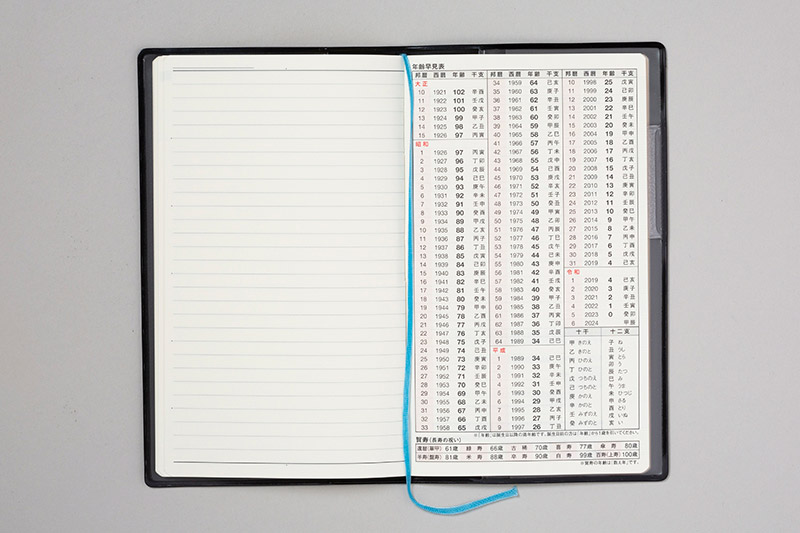 年齢早見表
邦暦 西暦 年齢 干支
大正
10 1921 102 辛酉
11 1922 101 壬戌
12 1923 100 癸亥
13 1924 99 甲子
14 1925 98 乙丑
15 1926 97 丙寅
昭和
1 1926 97 丙寅
2 1927 96 丁卯
3 1928 95 戊辰
4 1929 94 己巳
5 1930 93 庚午
6 1931 92 辛未
7 1932 91 壬申
8 1933 90 癸酉
9 1934 89 甲戌
10 1935 88 乙亥
11 1936 87 丙子
12 1937 86 丁丑
13 1938 85 戊寅
14 1939 84 己卯
15 1940 83 庚辰
16 1941 82 辛巳
17 1942 81 壬午
18 1943 80 癸未
19 1944 79 甲申
20 1945 78 乙酉
21 1946 77 丙戌
22 1947 76 丁亥
23 1948 75 戊子
24 1949 74 己丑
25 1950 73 庚寅
26 1951 72 辛卯
27 1952 71 壬辰
28 1953 70 癸巳
29 1954 69 甲午
30 1955 68 乙未
31 1956 67 丙申
32 1957 66 丁酉
33 1958 65 戊戌
邦暦 西暦 年齢 干支
34 1959 64 己亥
35 1960 63 庚子
36 1961 62 辛丑
37 1962 61 壬寅
38 1963 60 癸卯
39 1964 59 甲辰
40 1965 58 乙巳
41 1966 57 丙午
42 1967 56 丁未
43 1968 55 戊申
44 1969 54 己酉
45 1970 53 庚戌
46 1971 52 辛亥
47 1972 51 壬子
48 1973 50 癸丑
49 1974 49 甲寅
50 1975 48 乙卯
51 1976 47 丙辰
52 1977 46 丁巳
53 1978 45 戊午
54 1979 44 己未
55 1980 43 庚申
56 1981 42 辛酉
57 1982 41 壬戌
58 1983 40 癸亥
59 1984 39 甲子
60 1985 38 乙丑
61 1986 37 丙寅
62 1987 36 丁卯
63 1988 35 戊辰
64 1989 34 己巳
平成
1 1989 34 己巳
2 1990 33 庚午
3 1991 32 辛未
4 1992 31 壬申
5 1993 30 癸酉
6 1994 29 甲戌
7 1995 28 乙亥
8 1996 27 丙子
9 1997 26 丁丑
邦暦 西暦 年齢 干支
10 1998 25 戊寅
11 1999 24 己卯
12 2000 23 庚辰
13 2001 22 辛巳
14 2002 21 壬午
15 2003 20 癸未
16 2004 19 甲申
17 2005 18 乙酉
18 2006 17 丙戌
19 2007 16 丁亥
20 2008 15 戊子
21 2009 14 己丑
22 2010 13 庚寅
23 2011 12 辛卯
24 2012 11 壬辰
25 2013 10 癸巳
26 2014 9 甲午
27 2015 8 乙未
28 2016 7 丙申
29 2017 6 丁酉
30 2018 5 戊戌
31 2019 4 己亥
令和
1 2019 4 己亥
2 2020 3 庚子
3 2021 2 辛丑
4 2022 1 壬寅
5 2023 0 癸卯
6 2024 甲辰
十干 十二支
甲 きのえ
乙 きのと
丙 ひのえ
丁 ひのと
戊 つちのえ
己 つちのと
庚 かのえ
辛 かのと
壬 みずのえ
癸 みずのと
子 ね
丑 うし
寅 とら
卯 う
辰 たつ
巳 み
午 うま
未 ひつじ
申 さる
酉 とり
戌 いぬ
亥 い
※「年齢」は誕生日以降の満年齢です。誕生日前の方は「年齢」から1歳を引いてください。
賀寿(長寿の祝い)
還暦(華甲) 61歳 緑寿 66歳 古稀 70歳 喜寿 77歳 傘寿 80歳
半寿(盤寿) 81歳 米寿 88歳 卒寿 90歳 白寿 99歳 百寿(上寿) 100歳
※賀寿の年齢は「数え年」です。